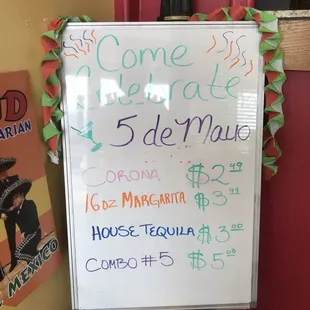 Come
Celebrate
5 de Mayo
CORONA $2.99
16oz MARGARITA $3.99
HOUSE TEQUILA $3.00
COMBO #5 $5.00
ARIAN
MEXICO